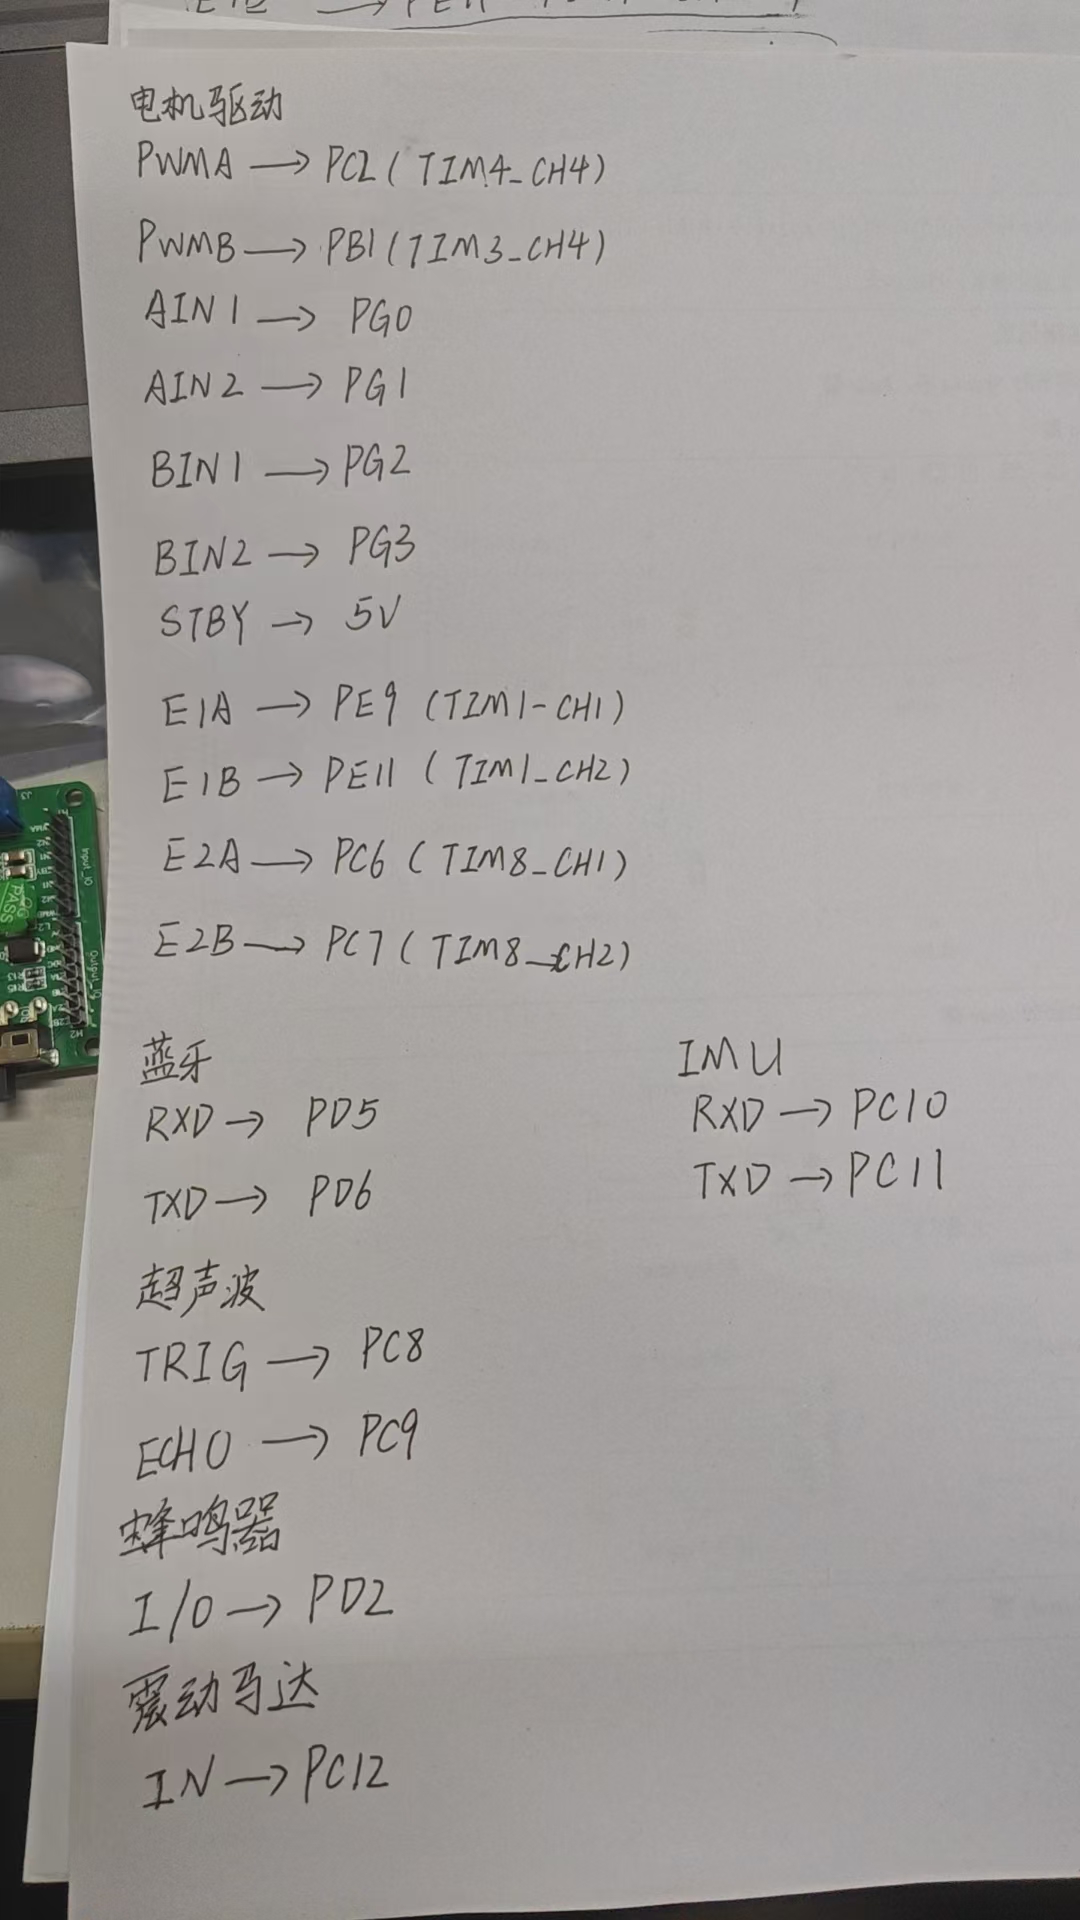 电机驱动
PWMA → PC2 (TIM4_CH4)
PWMB → PB1 (TIM3_CH4)
AIN1 → PG0
AIN2 → PG1
BIN1 → PG2
BIN2 → PG3
STBY → 5V
E1A → PE9 (TIM1-CH1)
E1B → PE11 (TIM1_CH2)
E2A → PC6 (TIM8_CH1)
E2B → PC7 (TIM8_CH2)
蓝牙
RXD → PD5
TXD → PD6
IMU
RXD → PC10
TXD → PC11
超声波
TRIG → PC8
ECHO → PC9
蜂鸣器
I/O → PD2
震动马达
IN → PC12
Input_IO
Output_IO
PASS